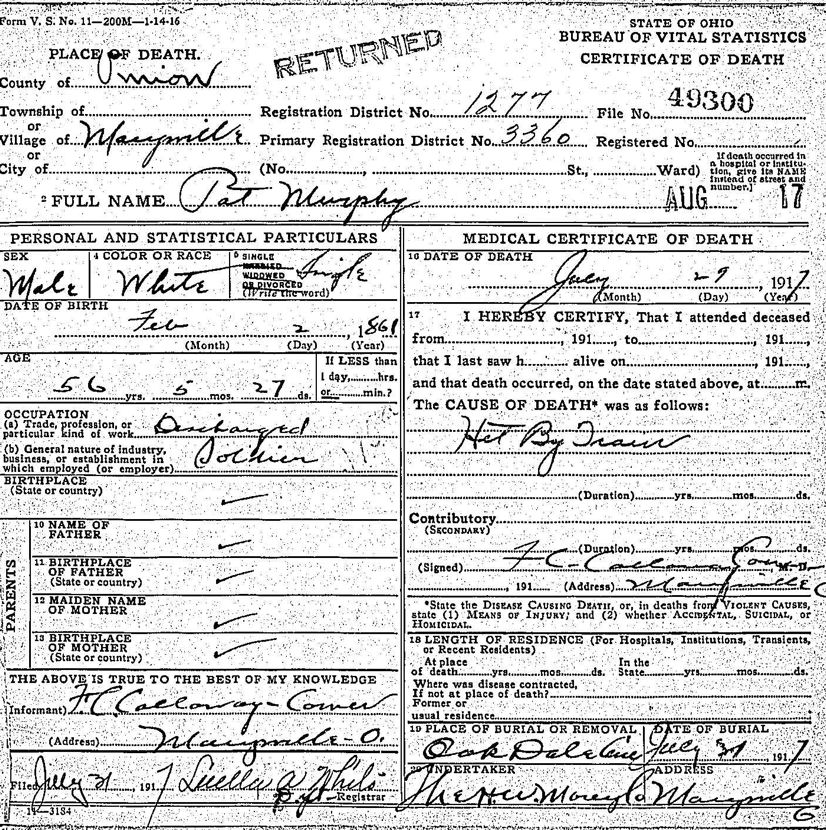 Form V. S. No. 11—200M—1-14-16
STATE OF OHIO
BUREAU OF VITAL STATISTICS
CERTIFICATE OF DEATH
RETURNED
PLACE OF DEATH.
County of Union
Township of
or
Village of Marysville
or
City of
Registration District No. 1277 File No. 49300
Primary Registration District No. 3360 Registered No.
(No. , St., Ward)
If death occurred in
a hospital or institu-
tion, give its NAME
instead of street and
number.]
AUG 17
2 FULL NAME Pat Murphy
PERSONAL AND STATISTICAL PARTICULARS
SEX
Male
4 COLOR OR RACE
White
5 SINGLE
MARRIED
WIDOWED
OR DIVORCED
(Write the word)
Single
DATE OF BIRTH
Feb 2, 1861
(Month) (Day) (Year)
AGE
56 yrs. 5 mos. 27 ds.
If LESS than
1 day, hrs.
or min.?
OCCUPATION
(a) Trade, profession, or
particular kind of work Discharged
(b) General nature of industry,
business, or establishment in
which employed (or employer) Soldier
BIRTHPLACE
(State or country)
PARENTS
10 NAME OF
FATHER
11 BIRTHPLACE
OF FATHER
(State or country)
12 MAIDEN NAME
OF MOTHER
13 BIRTHPLACE
OF MOTHER
(State or country)
THE ABOVE IS TRUE TO THE BEST OF MY KNOWLEDGE
Informant) F.C. Calloway - Coroner
(Address) Marysville - O.
Filed July 31, 1917 Luella A
Registrar
11—3184
MEDICAL CERTIFICATE OF DEATH
16 DATE OF DEATH
July 29, 1917
(Month) (Day) (Year)
17 I HEREBY CERTIFY, That I attended deceased
from , 191 , to , 191 ,
that I last saw h alive on , 191 ,
and that death occurred, on the date stated above, at m.
The CAUSE OF DEATH* was as follows:
Hit By Train
(Duration) yrs. mos. ds.
Contributory
(SECONDARY)
(Duration) yrs. mos. ds.
(Signed) F.C. Calloway Coroner, M. D.
, 191 (Address) Marysville O
*State the DISEASE CAUSING DEATH, or, in deaths from VIOLENT CAUSES,
state (1) MEANS OF INJURY; and (2) whether ACCIDENTAL, SUICIDAL, or
HOMICIDAL.
18 LENGTH OF RESIDENCE (For Hospitals, Institutions, Transients,
or Recent Residents)
At place
of death yrs. mos. ds.
In the
State yrs. mos. ds.
Where was disease contracted,
If not at place of death?
Former or
usual residence
19 PLACE OF BURIAL OR REMOVAL
Oak Dale Cem
DATE OF BURIAL
July 31 1917
20 UNDERTAKER
The H.W. Morey Co
ADDRESS
Marysville
O